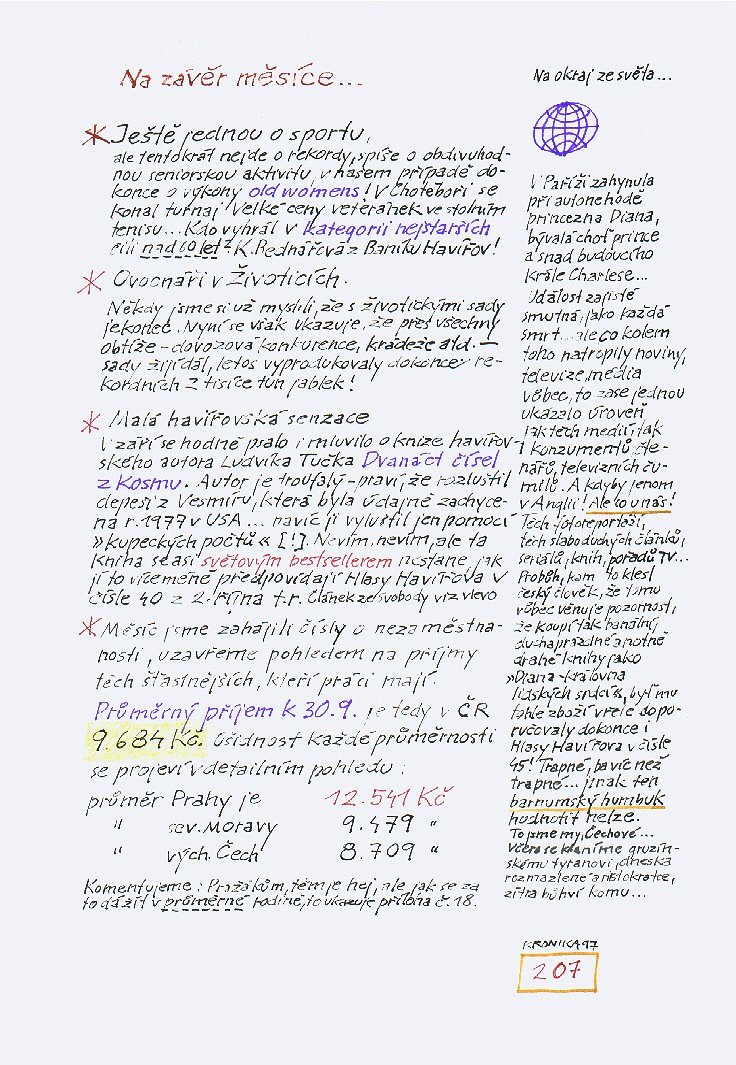 Na závěr měsíce...
* Ještě jednou o sportu,
ale tentokrát nejde o rekordy, spíše o obdivuhod-
nou seniorskou aktivitu, v našem případě do-
konce o výkony old womens! V Chotěboři se
konal turnaj Velké ceny veteránek ve stolním
tenisu... Kdo vyhrál v kategorii nejstarších
čili nad 60 let? K. Bednářová z Baníku Havířov!
* Ovocnáři v Životicích.
Někdy jsme si už mysleli, že s životickými sady
je konec. Nyní se však ukazuje, že přes všechny
obtíže - dovozová konkurence, krádeže atd. -
sady žijí dál, letos vyprodukovaly dokonce re-
kordních 2 tisíce tun jablek!
* Malá havířovská senzace
V září se hodně psalo i mluvilo o knize havířov-
ského autora Ludvíka Tučka Dvanáct čísel
z Kosmu. Autor je troufalý - praví, že rozluštil
depeši z Vesmíru, která byla údajně zachyce-
na r. 1977 v USA... navíc ji vyluštil jen pomocí
»kupeckých počtů« [!]. Nevím, nevím, ale ta
kniha se asi světovým bestsellerem nestane, jak
jí to víceméně předpovídají Hlasy Havířova v
čísle 40 z 2. října t.r. Článek ze Svobody viz vlevo
* Měsíc jsme zahájili čísly o nezaměstna-
nosti, uzavřeme pohledem na příjmy
těch šťastnějších, kteří práci mají.
Průměrný příjem k 30.9. je tedy v ČR
9.684 Kč. Ošidnost každé průměrnosti
se projeví v detailním pohledu:
průměr Prahy je 12.541 Kč
" sev. Moravy 9.479 "
" vých. Čech 8.709 "
Komentujeme: Pražákům, těm je hej, ale jak se za
to dá žít v průměrné rodině, to ukazuje příloha č. 18.
Na okraj ze světa...
V Paříži zahynula
při autonehodě
princezna Diana,
bývalá choť prince
a snad budoucího
krále Charlese...
Událost zajisté
smutná, jako každá
smrt... ale co kolem
toho natropily noviny,
televize, média
vůbec, to zase jednou
ukázalo úroveň
jak těch médií, tak
i konzumentů, čte-
nářů, televizních ču-
milů. A kdyby jenom
v Anglii! Ale co u nás!
Těch fotoreportáží,
těch slaboduchých článků,
seriálů, knih, pořadů TV...
Proboh, kam to klesl
český člověk, že tomu
vůbec věnuje pozornost,
že koupí tak banální,
duchaprázdné a notně
drahé knihy jako
»Diana - královna
lidských srdcí«, byť mu
tohle zboží vřele dopo-
ručovaly dokonce i
Hlasy Havířova v čísle
45! Trapné, ba víc než
trapné... jinak ten
barnumský humbuk
hodnotit nelze.
To jsme my, Čechové...
Včera se kláníme gruzín-
skému tyranovi, dneska
rozmazlené aristokratce,
zítra bůhví komu...
KRONIKA 97
207